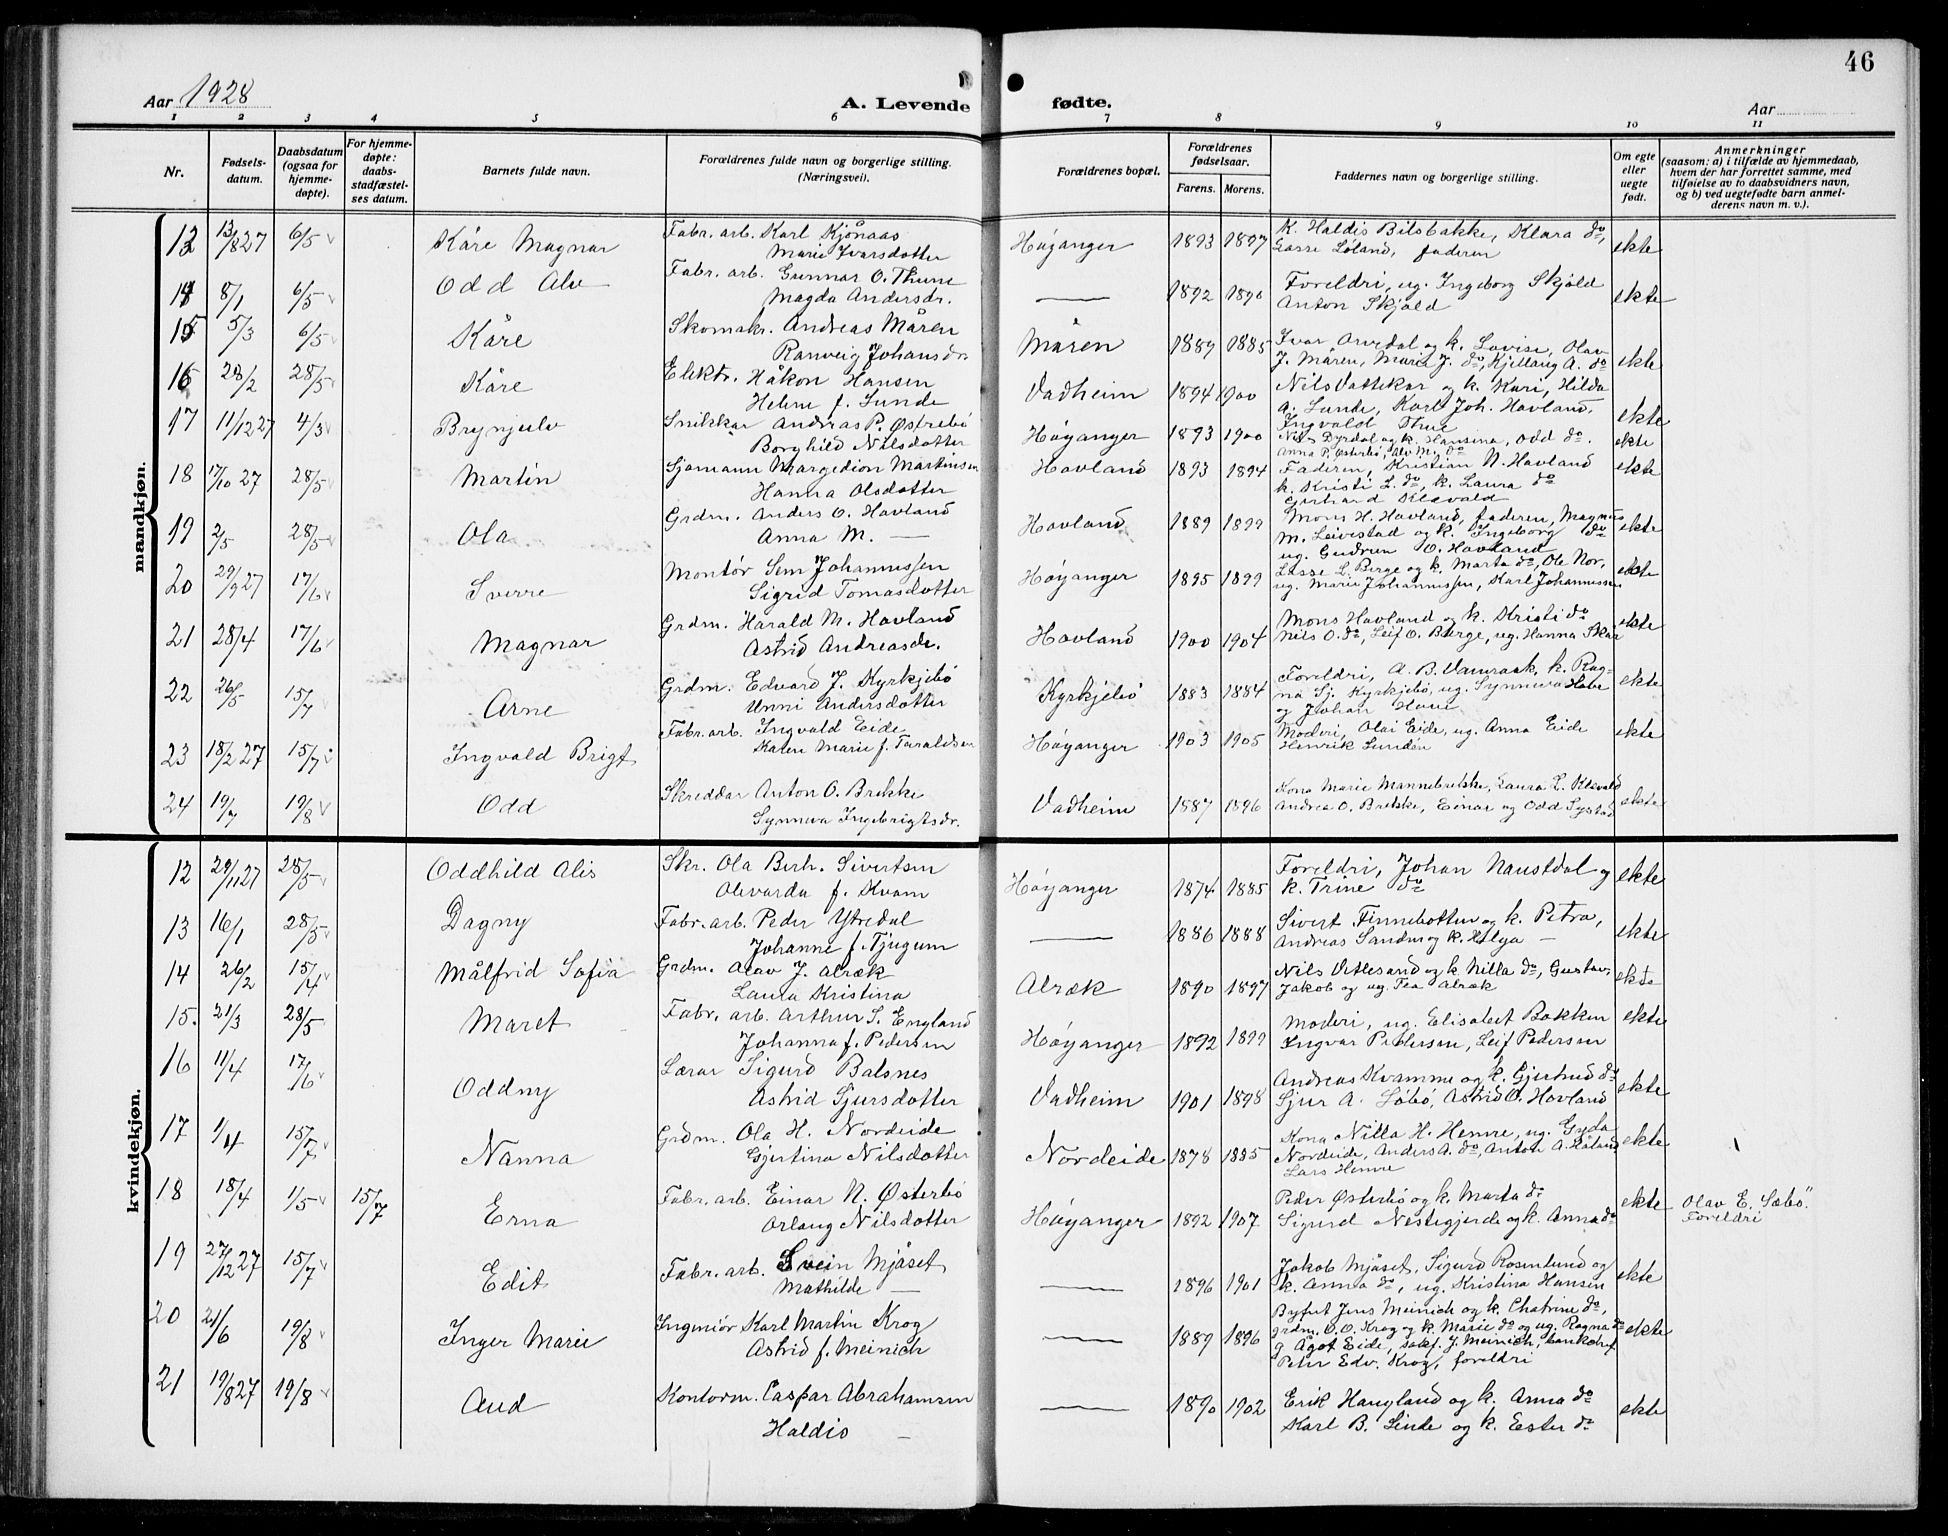 46
Aar 1928
A. Levende fødte.
Aar
1 2 3 4 5 6 7 8 9 10 11
Nr.
Fødsels-
datum.
Daabsdatum
(ogsaa for
hjemme-
døpte).
For hjemme-
døpte:
daabs-
stadfæstel-
ses datum.
Barnets fulde navn.
Forældrenes fulde navn og borgerlige stilling.
(Næringsvei).
Forældrenes bopæl.
Forældrenes
fødselsaar.
Farens. Morens.
Faddernes navn og borgerlige stilling.
Om egte
eller
uegte
født.
Anmerkninger
(saasom: a) i tilfælde av hjemmedaab,
hvem der har forrettet samme, med
tilføielse av to daabsvidners navn,
og b) ved uegtefødte barn anmel-
derens navn m. v.).
mandkjøn.
12 13/8 27 6/5 Kåre Magnar Fabr. arb. Karl Kjönaas Høyanger 1893 1897 K. Haldis Bilsbakke, Klara do, ekte
Marie Ivarsdotter Lasse Løland, faderen
14 8/1 6/5 Odd Alv Fabr. arb. Gunnar O. Thune — 1892 1890 Foreldri, ug. Ingeborg Skjöld ekte
Magda Andersdr. Anton Skjöld
15 5/3 6/5 Kåre Skomakr. Andreas Måren Måren 1889 1885 Ivar Orvedal og k. Lovise, Olav ekte
Ranveig Johansdr J. Måren, Marie J. do, Kjellaug A. do
16 23/2 28/5 Kåre Elektr. Håkon Hansen Vadheim 1894 1900 Nils Vattekar og k. Kari, Hilda ekte
Helene f. Sunde A. Sunde, Karl Joh. Hovland,
Ingvald Thue
17 11/12 27 4/3 Brynjulv Snikkar Andreas P. Østrebø Høyanger 1893 1900 Nils Dyrdal og k. Hansina, Odd do. ekte
Borghild Nilsdotter Anna P. Østerbö, Alv M. do
18 17/10 27 28/5 Martin Sjømann Margedion Martinsen Hovland 1893 1894 Faderen, Kristian N. Hovland ekte
Hanna Olsdotter k. Kristi L. do, k. Laura do
Gerhard Klævold
19 2/5 28/5 Ola Grdm. Anders O. Hovland Hovland 1889 1899 Mons H. Hovland, faderen, Magnus ekte
Anna M. — M. Leivestad og k. Ingeborg do
ug. Gudrun O. Hovland
20 29/9 27 17/6 Sverre Montör Sem Johannessen Høyanger 1895 1899 Lasse L. Berge og k. Marta do, Ole Nor, ekte
Sigrid Tomasdotter ug. Marie Johannessen, Karl Johannessen
21 28/4 17/6 Magnar Grdm. Harald M. Hovland Hovland 1900 1904 Mons Hovland og k. Kristi do ekte
Astrid Andreasdr. Nils O. do, Leif O. Berge, ug. Hanna Skar
22 26/5 15/7 Arne Grdm. Edvard J. Kyrkjebö Kyrkjebö 1883 1884 Foreldri, A. B. Vamraak, k. Rag- ekte
Unni Andersdotter na Sj. Kyrkjebö, ug. Synneva Hove
og Johan Hove
23 18/2 27 15/7 Ingvald Brigt Fabr. arb. Ingvald Eide Høyanger 1903 1905 Moderi, Olai Eide, ug. Anna Eide ekte
Karen Marie f. Taraldsen Henrik Sundén
24 19/7 19/8 Odd Skreddar Anton O. Brekke Vadheim 1887 1896 Kona Marie Mannebrekke, Laura L. Klævold ekte
Synneva Ingebrigtsdr. Andrea O. Brekke, Einar og Odd Systad
kvindekjøn.
12 29/11 27 28/5 Oddhild Alis Skr. Ola Bernh. Sivertsen Høyanger 1874 1885 Foreldri, Johan Naustdal og ekte
Olevarda f. Kvam k. Trine do
13 16/1 28/5 Dagny Fabr. arb. Peder Ytredal — 1886 1888 Sivert Finnebotten og k. Petra, ekte
Johanne f. Njugum Andreas Sandm og k. Helga —
14 26/2 15/4 Målfrid Sofia Grdm. Olav J. Alræk Alræk 1890 1897 Nils Vetlesand og k. Nilla do, Gustav, ekte
Laura Kristina Jakob og ug. Tea Alræk
15. 21/3 28/5 Maret Fabr. arb. Arthur S. England Høyanger 1892 1899 Moderi, ug. Elisabet Bakken ekte
Johanna f. Pedersen Ingvar Pedersen, Leif Pedersen
16 11/4 17/6 Oddny Lærar Sigurd Balsnes Vadheim 1901 1898 Andreas Kvamme og k. Gjertrud do ekte
Astrid Sjursdotter Sjur A. Söbö, Astrid O. Hovland
17 1/4 15/7 Nanna Grdm. Ola H. Nordeide Nordeide 1878 1885 Kona Nilla H. Hemre, ug. Gyda ekte
Gjertina Nilsdotter Nordeide, Anders A. do, Anton A. Håland
Lars Hemre
18 18/4 1/5 15/7 Erna Fabr. arb. Einar N. Østerbö Høyanger 1892 1907 Peder Østerbö og k. Marta do ekte Olav E. Sæbö"
Orlaug Nilsdotter Sigurd Nestegjerde og k. Anna do Foreldri
19 27/12 27 15/7 Edit Fabr. arb. Svein Mjåset — 1896 1901 Jakob Mjåset, Sigurd Rosenlund og ekte
Mathilde — k. Anna do, ug. Kristina Hansen
20 21/6 19/8 Inger Marie Ingeniör Karl Martin Krog — 1889 1896 Byfut Jens Meinich og k. Chatrine do, ekte
Astrid f. Meinich grdm. O. O. Krog og k. Marie do og ug. Ragna do
og Ågot Eide, J. Meinich,
Peter Edv. Krog, foreldri
21 19/8 27 19/8 Aud Kontorm. Caspar Abrahamsen — 1890 1902 Erik Haugland og k. Anna do ekte
Haldis — Karl B. Linde og k. Ester do